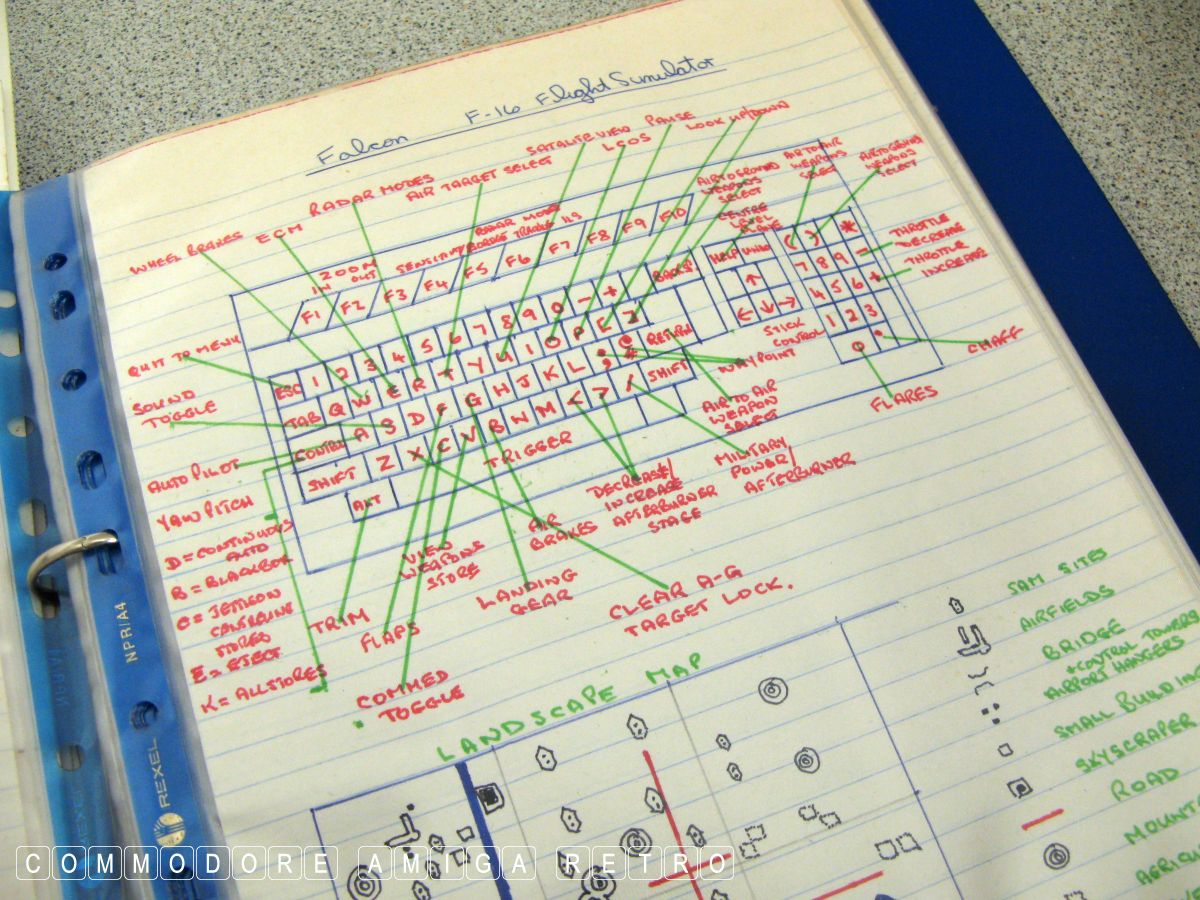 Falcon F-16 Flight Simulator
SATALITE VIEW
LCOS
PAUSE
LOOK UP/DOWN
RADAR MODES
AIR TARGET SELECT
AIRTOGROUND
WEAPONS
SELECT
AIRTOAIR
WEAPONS
SELECT
AIRTOGROUND
WEAPONS
SELECT
WHEEL BRAKES
ECM
ZOOM
IN OUT
RADAR MODE
CENTRE
LEVEL
PLANE
THROTTLE
DECREASE
THROTTLE
INCREASE
F1 F2 F3 F4 F5 F6 F7 F8 F9 F10
HELP
( ) *
7 8 9 -
4 5 6 +
1 2 3
0 .
ESC 1 2 3 4 5 6 7 8 9 0 - + BACKS
TAB Q W E R T Y U I O P [ ] RETURN
CONTROL A S D F G H J K L ; #
SHIFT Z X C V B N M < > / SHIFT
ALT
↑
← ↓ →
STICK
CONTROL
QUIT TO MENU
SOUND
TOGGLE
AUTO PILOT
YAW PITCH
D = CONTINUOUS
AUTO
B = BLACKBOX
C = JETTISON
CENTRELINE
STORES
E = EJECT
K = ALLSTORES
TRIGGER
WAYPOINT
CHAFF
FLARES
AIR TO AIR
WEAPON
SELECT
MILITARY
POWER/
AFTERBURNER
DECREASE/
INCREASE
AFTERBURNER
STAGE
AIR
BRAKES
VIEW
WEAPONS
STORE
LANDING
GEAR
CLEAR A-G
TARGET LOCK.
TRIM
FLAPS
COMMED
TOGGLE
LANDSCAPE MAP
SAM SITES
AIRFIELDS
BRIDGE
+CONTROL TOWERS
AIRPORT HANGERS
SMALL BUILDIN
SKYSCRAPER
ROAD
MOUNT
NPR/A4
REXEL
COMMODORE AMIGA RETRO